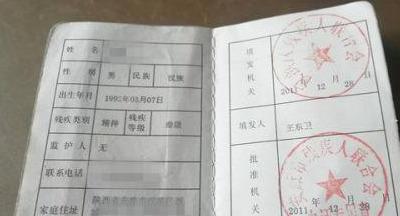 姓 名
性 别 男 民族 汉族
出生年月 1992年03月07日
残疾类别 精神 残疾等级
监 护 人 无
联系电话
家庭住址
填发机关
残疾人联合会
2011 12 28 日
填发人 王东卫
批准机关
残疾人联合会
2011 12 28 日